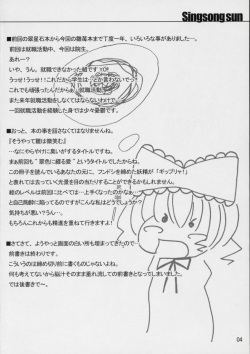 Singsongsun
■前回の翠星石本から今回の雛苺本まで丁度一年、いろいろな事が有りました…。
前回は就職活動中、今回は院生。
あれー？
いや、うん。就職できなかった組ですYO!
うっせ！うっせ！これだから学生は…とか言わないで…。
これでも頑張ったんだからぁ、就職活動…。
また来年就職活動をしなくてはならないわけで、
一回就職活動を経験した身では少々憂鬱です。
■おっと、本の事を話さなくてはなりませんね。
『そうやって雛は微笑む』
…なにやらやけに臭いがするタイトルですね。
まぁ前回も『翠色に綴る愛』というタイトルでしたからね。
この冊子を読んでいるあなたの元に、フンドシを締めた妖精が「ギップリャ！」
と現れては去っていく光景を目の当たりにする事ができるかもしれません。
絵のレベルは前回に比べては…上手くなったのかなぁ…
と自己陶酔に陥ってるのですがこんな私はどうでしょう？
気持ちが悪いですね…。
もちろんこれからも精進を重ねて行きますよ！
■さてさて、ようやっと画面の白い所も埋まってきたので
前書きは終わりです。
こういうのは締め切り前に書くものじゃないよね。
何も考えてないから脳汁をそのまま垂れ流しての前書きとなってしまいました。
では後書きで～。
04